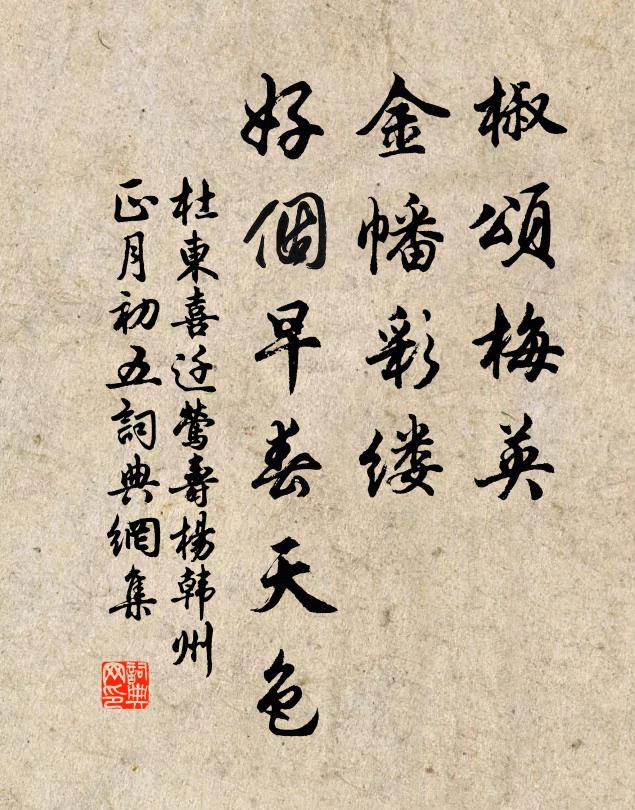 椒頌梅英
金幡彩缕
好個早春天色
杜東喜迁鶯壽楊韩州
正月初五詞典網集
詞典网印